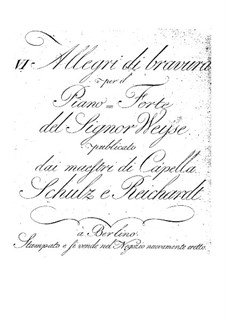 VI Allegri di bravura
per il
Piano=Forte
del Signor Weyse
publicato
dai maestri di Capella
Schulz e Reichardt.
a Berlino
Stampato e si vende nel Negozio nuovamente eretto.